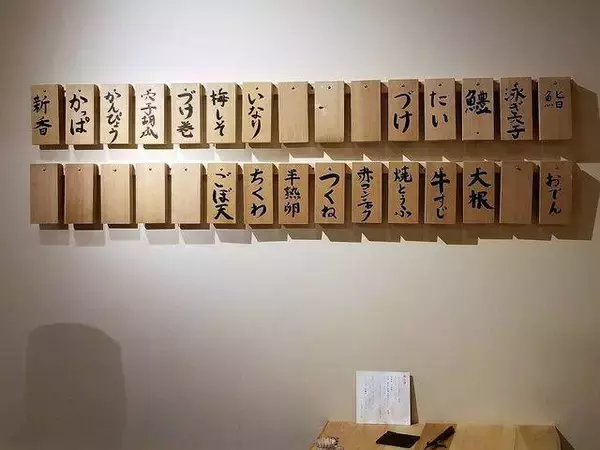 鮨
泳ぎ穴子
鱧
たい
づけ
いなり
梅しそ
づけ巻
穴子胡瓜
かんぴょう
かっぱ
新香
おでん
大根
牛すじ
焼とうふ
赤コンニャク
つくね
半熟卵
ちくわ
ごぼ天